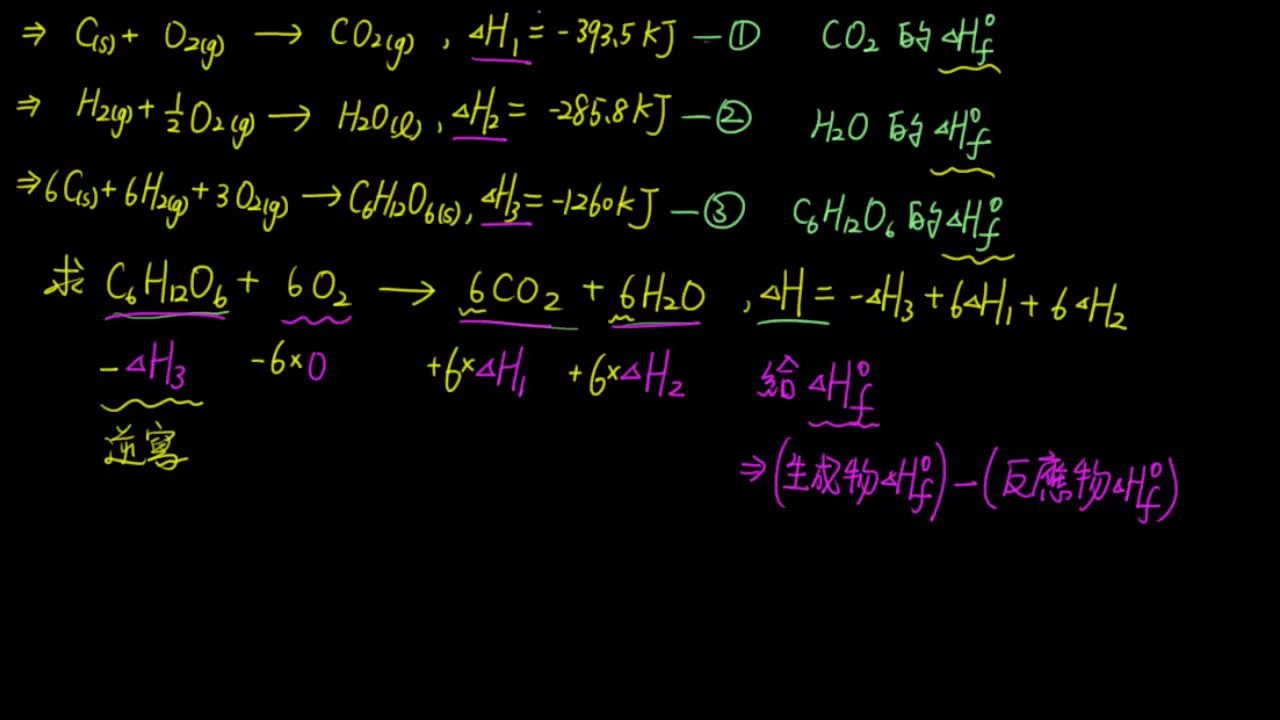 ⇒ C(s) + O2(g) → CO2(g) , ΔH1 = -393.5 KJ —① CO2 的 ΔH°f
⇒ H2(g) + 1/2 O2(g) → H2O(l) , ΔH2 = -285.8 KJ —② H2O 的 ΔH°f
⇒ 6C(s) + 6H2(g) + 3O2(g) → C6H12O6(s), ΔH3 = -1260 KJ —③ C6H12O6 的 ΔH°f
求 C6H12O6 + 6O2 → 6CO2 + 6H2O , ΔH = -ΔH3 + 6ΔH1 + 6ΔH2
-ΔH3 -6×0 +6×ΔH1 +6×ΔH2 給 ΔH°f
逆寫
⇒ (生成物ΔH°f) - (反應物ΔH°f)